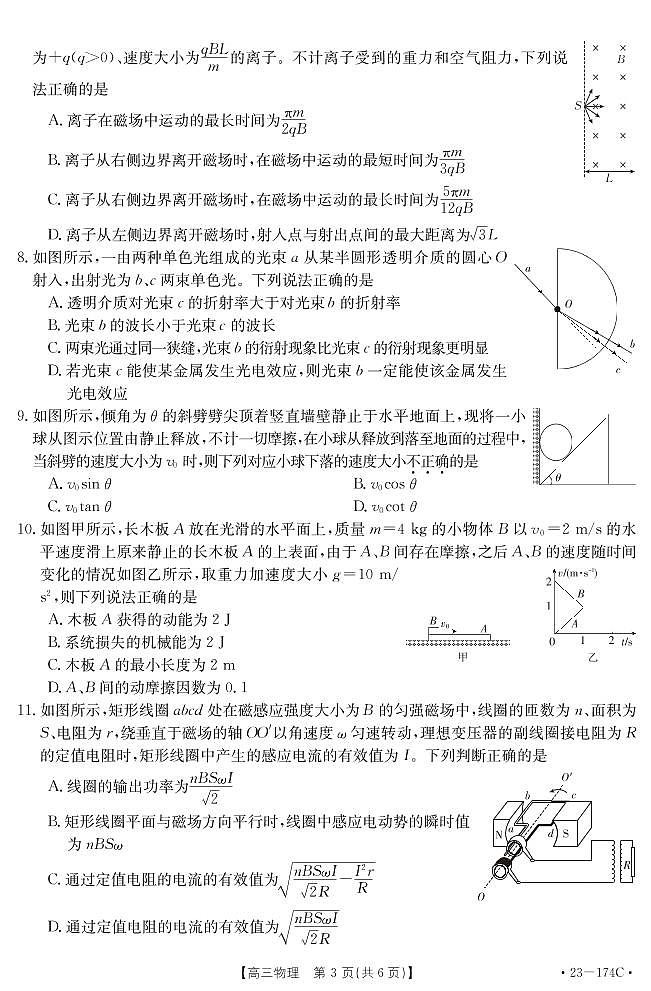 为+q(q>0)、速度大小为qBL/m的离子。不计离子受到的重力和空气阻力,下列说
法正确的是
A. 离子在磁场中运动的最长时间为πm/2qB
B. 离子从右侧边界离开磁场时,在磁场中运动的最短时间为πm/3qB
C. 离子从右侧边界离开磁场时,在磁场中运动的最长时间为5πm/12qB
D. 离子从左侧边界离开磁场时,射入点与射出点间的最大距离为√3L
× ×
B
× ×
S
×
× ×
× ×
L
8. 如图所示,一由两种单色光组成的光束 a 从某半圆形透明介质的圆心 O
射入,出射光为 b、c 两束单色光。下列说法正确的是
A. 透明介质对光束 c 的折射率大于对光束 b 的折射率
B. 光束 b 的波长小于光束 c 的波长
C. 两束光通过同一狭缝,光束 b 的衍射现象比光束 c 的衍射现象更明显
D. 若光束 c 能使某金属发生光电效应,则光束 b 一定能使该金属发生
光电效应
a
O
b
c
9. 如图所示,倾角为 θ 的斜劈劈尖顶着竖直墙壁静止于水平地面上,现将一小
球从图示位置由静止释放,不计一切摩擦,在小球从释放到落至地面的过程中,
当斜劈的速度大小为 v₀ 时,则下列对应小球下落的速度大小不正确的是
A. v₀sin θ B. v₀cos θ
C. v₀tan θ D. v₀cot θ
θ
10. 如图甲所示,长木板 A 放在光滑的水平面上,质量 m=4 kg 的小物体 B 以 v₀=2 m/s 的水
平速度滑上原来静止的长木板 A 的上表面,由于 A、B 间存在摩擦,之后 A、B 的速度随时间
变化的情况如图乙所示,取重力加速度大小 g=10 m/
s²,则下列说法正确的是
A. 木板 A 获得的动能为 2 J
B. 系统损失的机械能为 2 J
C. 木板 A 的最小长度为 2 m
D. A、B 间的动摩擦因数为 0. 1
B v₀ A
甲
v/(m·s⁻¹)
2
B
1
A
0 1 2 t/s
乙
11. 如图所示,矩形线圈 abcd 处在磁感应强度大小为 B 的匀强磁场中,线圈的匝数为 n、面积为
S、电阻为 r,绕垂直于磁场的轴 OO′以角速度 ω 匀速转动,理想变压器的副线圈接电阻为 R
的定值电阻时,矩形线圈中产生的感应电流的有效值为 I。下列判断正确的是
A. 线圈的输出功率为nBSωI/√2
B. 矩形线圈平面与磁场方向平行时,线圈中感应电动势的瞬时值
为 nBSω
C. 通过定值电阻的电流的有效值为√(nBSωI/√2R − I²r/R)
D. 通过定值电阻的电流的有效值为√(nBSωI/√2R)
O′
b c
N a d S
R
O
【高三物理 第 3 页(共 6 页)】 ·23—174C·